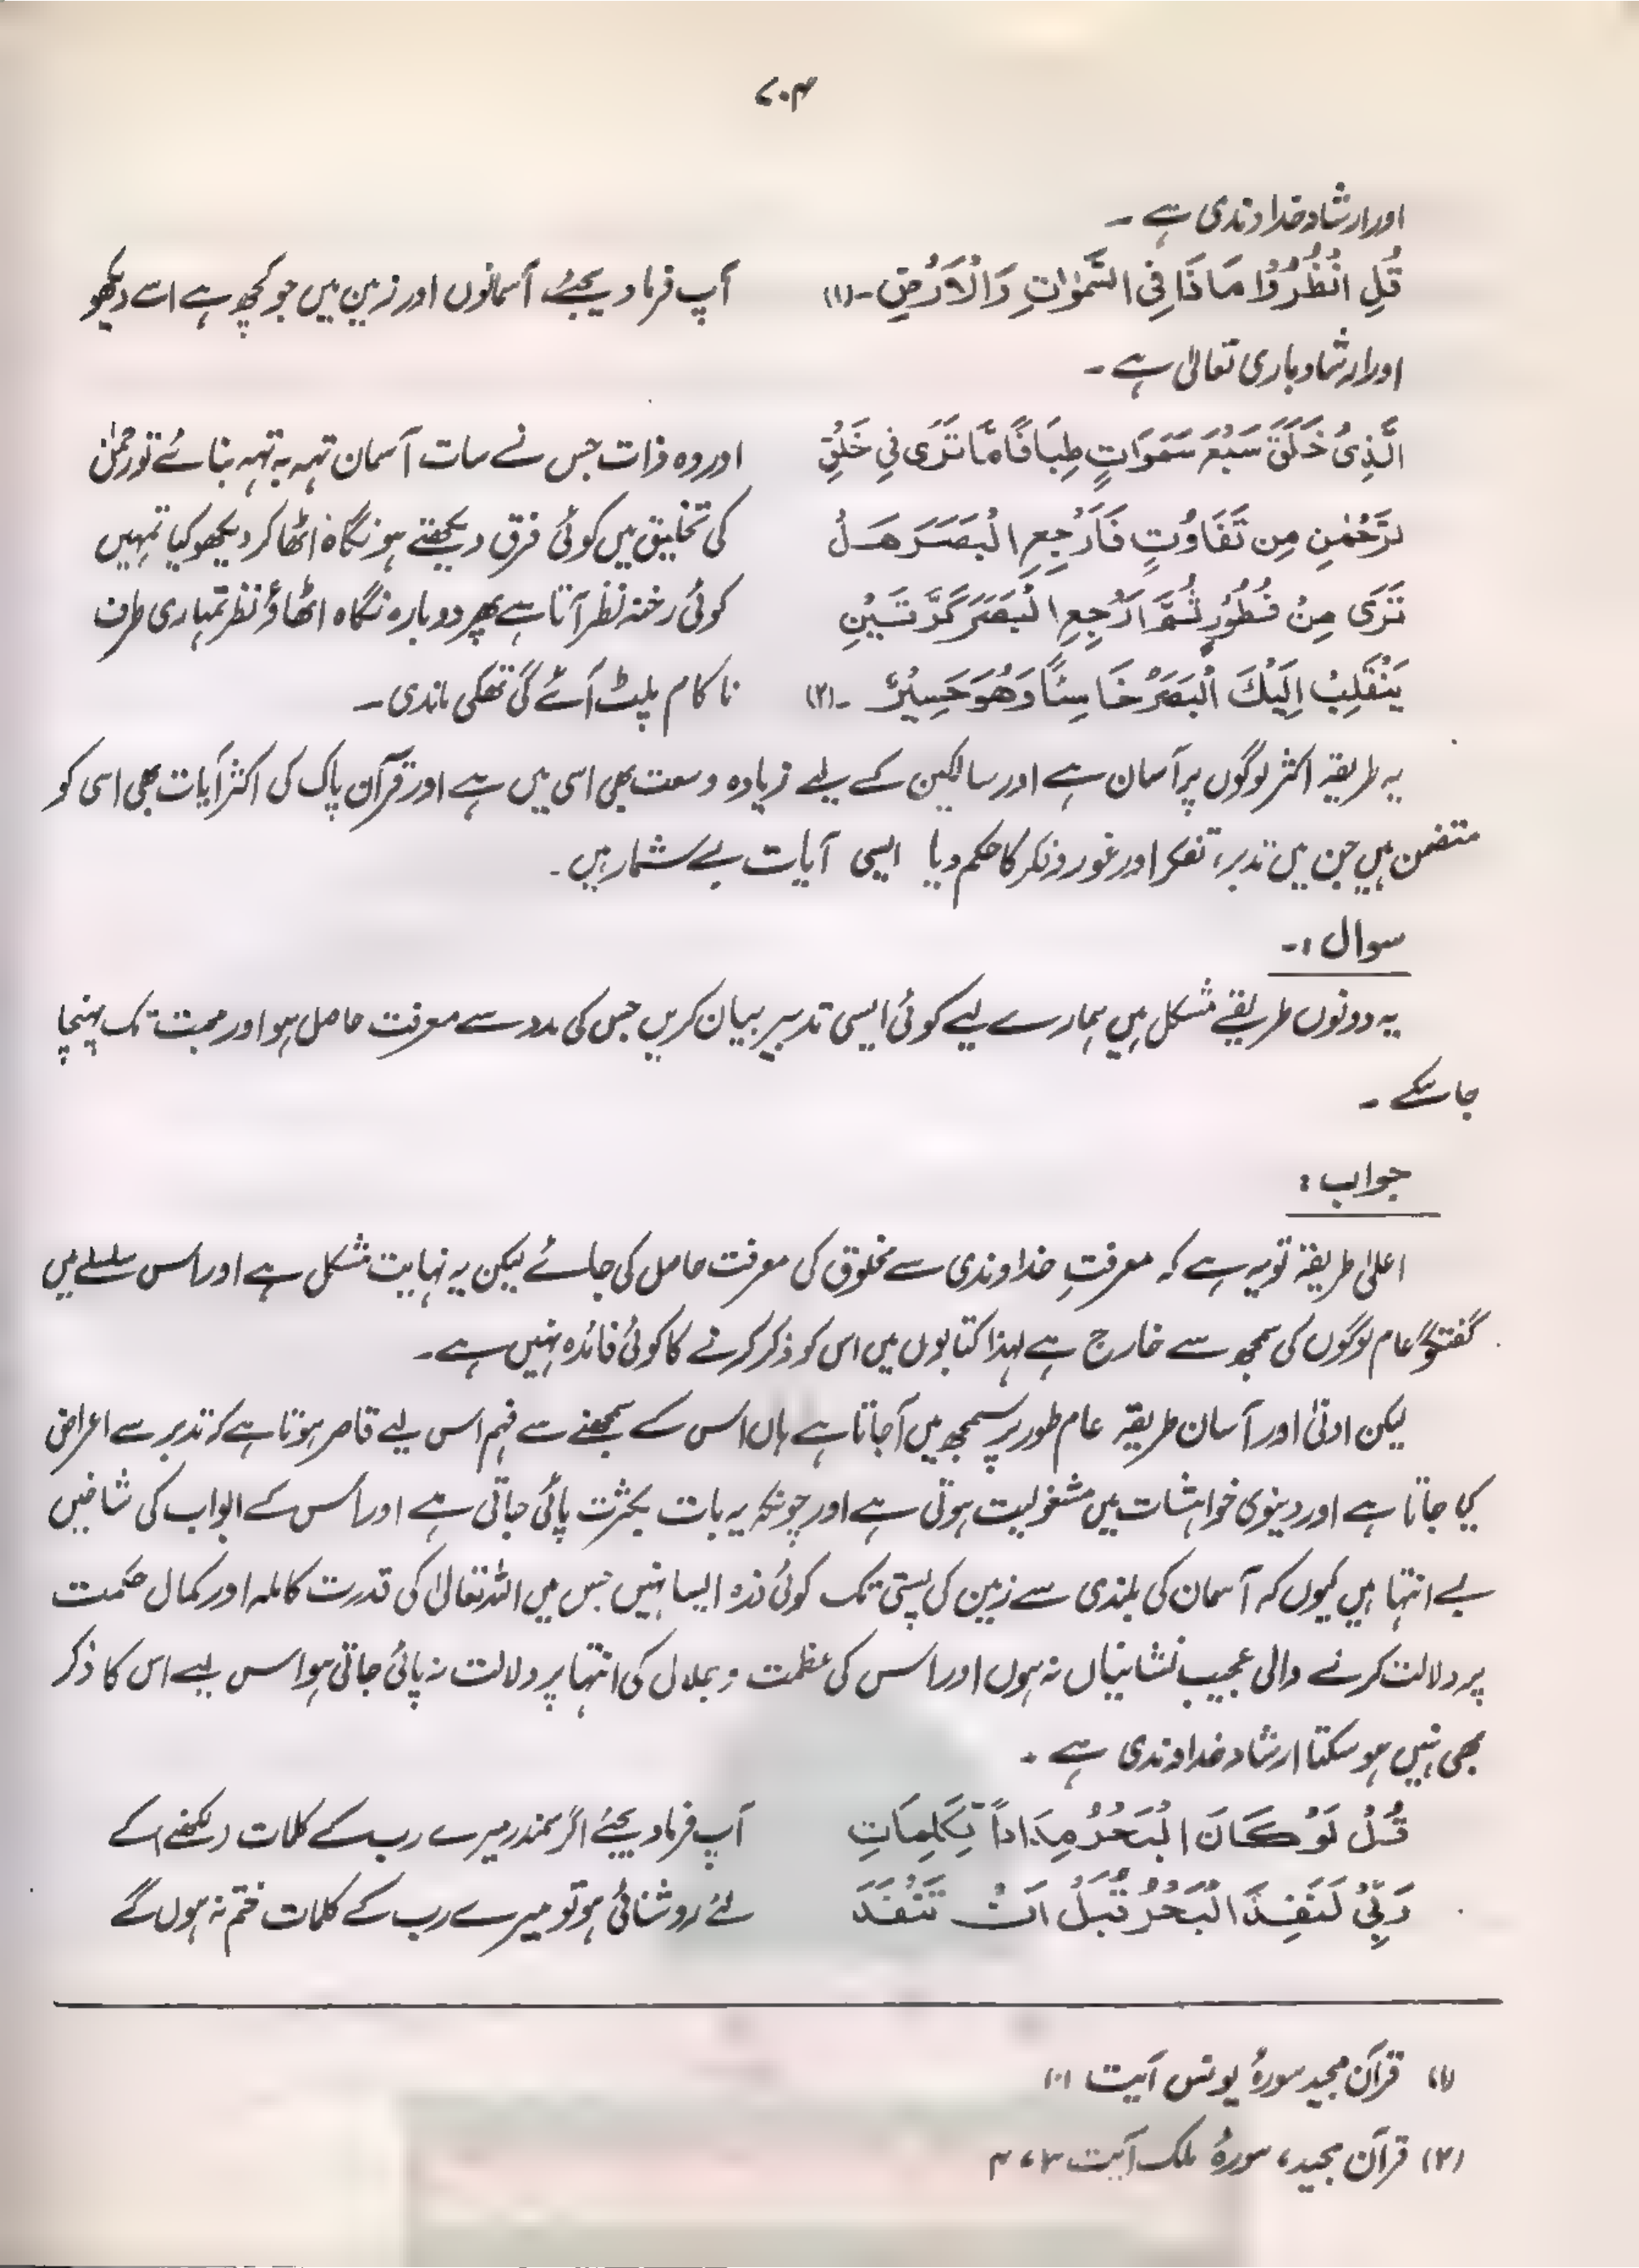 ۷۰۴
اور ارشاد خداوندی ہے ۔
قُلِ انْظُرُوْا مَاذَا فِی السَّمٰوٰتِ وَالْاَرْضِ ۔(۱) آپ فرما دیجئے آسمانوں اور زمین میں جو کچھ ہے اسے دیکھو
اور ارشاد باری تعالیٰ ہے ۔
الَّذِیْ خَلَقَ سَبْعَ سَمَوَاتٍ طِبَاقًا مَّا تَرَی فِی خَلْقِ اور وہ ذات جس نے سات آسمان تہہ بہ تہہ بنائے تو رحمٰن
لرَّحْمٰنِ مِن تَفَاوُتٍ فَارْجِعِ الْبَصَرَ هَلْ کی تخلیق میں کوئی فرق دیکھتے ہو نگاہ اٹھا کر دیکھو کیا تمہیں
تَرَی مِنْ فُطُوْرٍ ثُمَّ ارْجِعِ الْبَصَرَ کَرَّتَیْنِ کوئی رخنہ نظر آتا ہے پھر دوبارہ نگاہ اٹھاؤ نظر تمہاری طرف
یَنْقَلِبْ اِلَیْكَ الْبَصَرُ خَاسِئًا وَهُوَ حَسِیْرٌ ۔(۲) ناکام پلٹ آئے گی تھکی ماندی ۔
یہ طریقہ اکثر لوگوں پر آسان ہے اور سالکین کے لیے زیادہ وسعت بھی اسی میں ہے اور قرآن پاک کی اکثر آیات بھی اسی کو
متضمن ہیں جن میں تدبر، تفکر اور غور و فکر کا حکم دیا ایسی آیات بے شمار ہیں ۔
سوال :۔
یہ دونوں طریقے مشکل ہیں ہمارے لیے کوئی ایسی تدبیر بیان کریں جس کی مدد سے معرفت حاصل ہو اور محبت تک پہنچا
جا سکے ۔
جواب :
اعلیٰ طریقہ تو یہ ہے کہ معرفتِ خداوندی سے مخلوق کی معرفت حاصل کی جائے لیکن یہ نہایت مشکل ہے اور اس سلسلے میں
گفتگو عام لوگوں کی سمجھ سے خارج ہے لہذا کتابوں میں اس کو ذکر کرنے کا کوئی فائدہ نہیں ہے ۔
لیکن ادنیٰ اور آسان طریقہ عام طور پر سمجھ میں آجاتا ہے ہاں اس کے سمجھنے سے فہم اس لیے قاصر ہوتا ہے کہ تدبر سے اعراض
کیا جاتا ہے اور دینوی خواہشات میں مشغولیت ہوتی ہے اور چونکہ یہ بات بکثرت پائی جاتی ہے اور اس کے ابواب کی شاخیں
بے انتہا ہیں کیوں کہ آسمان کی بلندی سے زمین کی پستی تک کوئی ذرہ ایسا نہیں جس میں اللہ تعالیٰ کی قدرت کاملہ اور کمال حکمت
پر دلالت کرنے والی عجیب نشانیاں نہ ہوں اور اس کی عظمت و جلال کی انتہا پر دلالت نہ پائی جاتی ہو اس لیے اس کا ذکر
بھی نہیں ہو سکتا ارشاد خداوندی ہے ۔
قُلْ لَوْ کَانَ الْبَحْرُ مِدَاداً لِّکَلِمَاتِ آپ فرما دیجئے اگر سمندر میرے رب کے کلمات (لکھنے) کے
رَبِّیْ لَنَفِدَ الْبَحْرُ قَبْلَ اَنْ تَنْفَدَ لئے روشنائی ہو تو میرے رب کے کلمات ختم نہ ہوں گے
(۱) قرآن مجید سورۂ یونس آیت ۱۰۱
(۲) قرآن مجید، سورۂ ملک آیت ۳، ۴